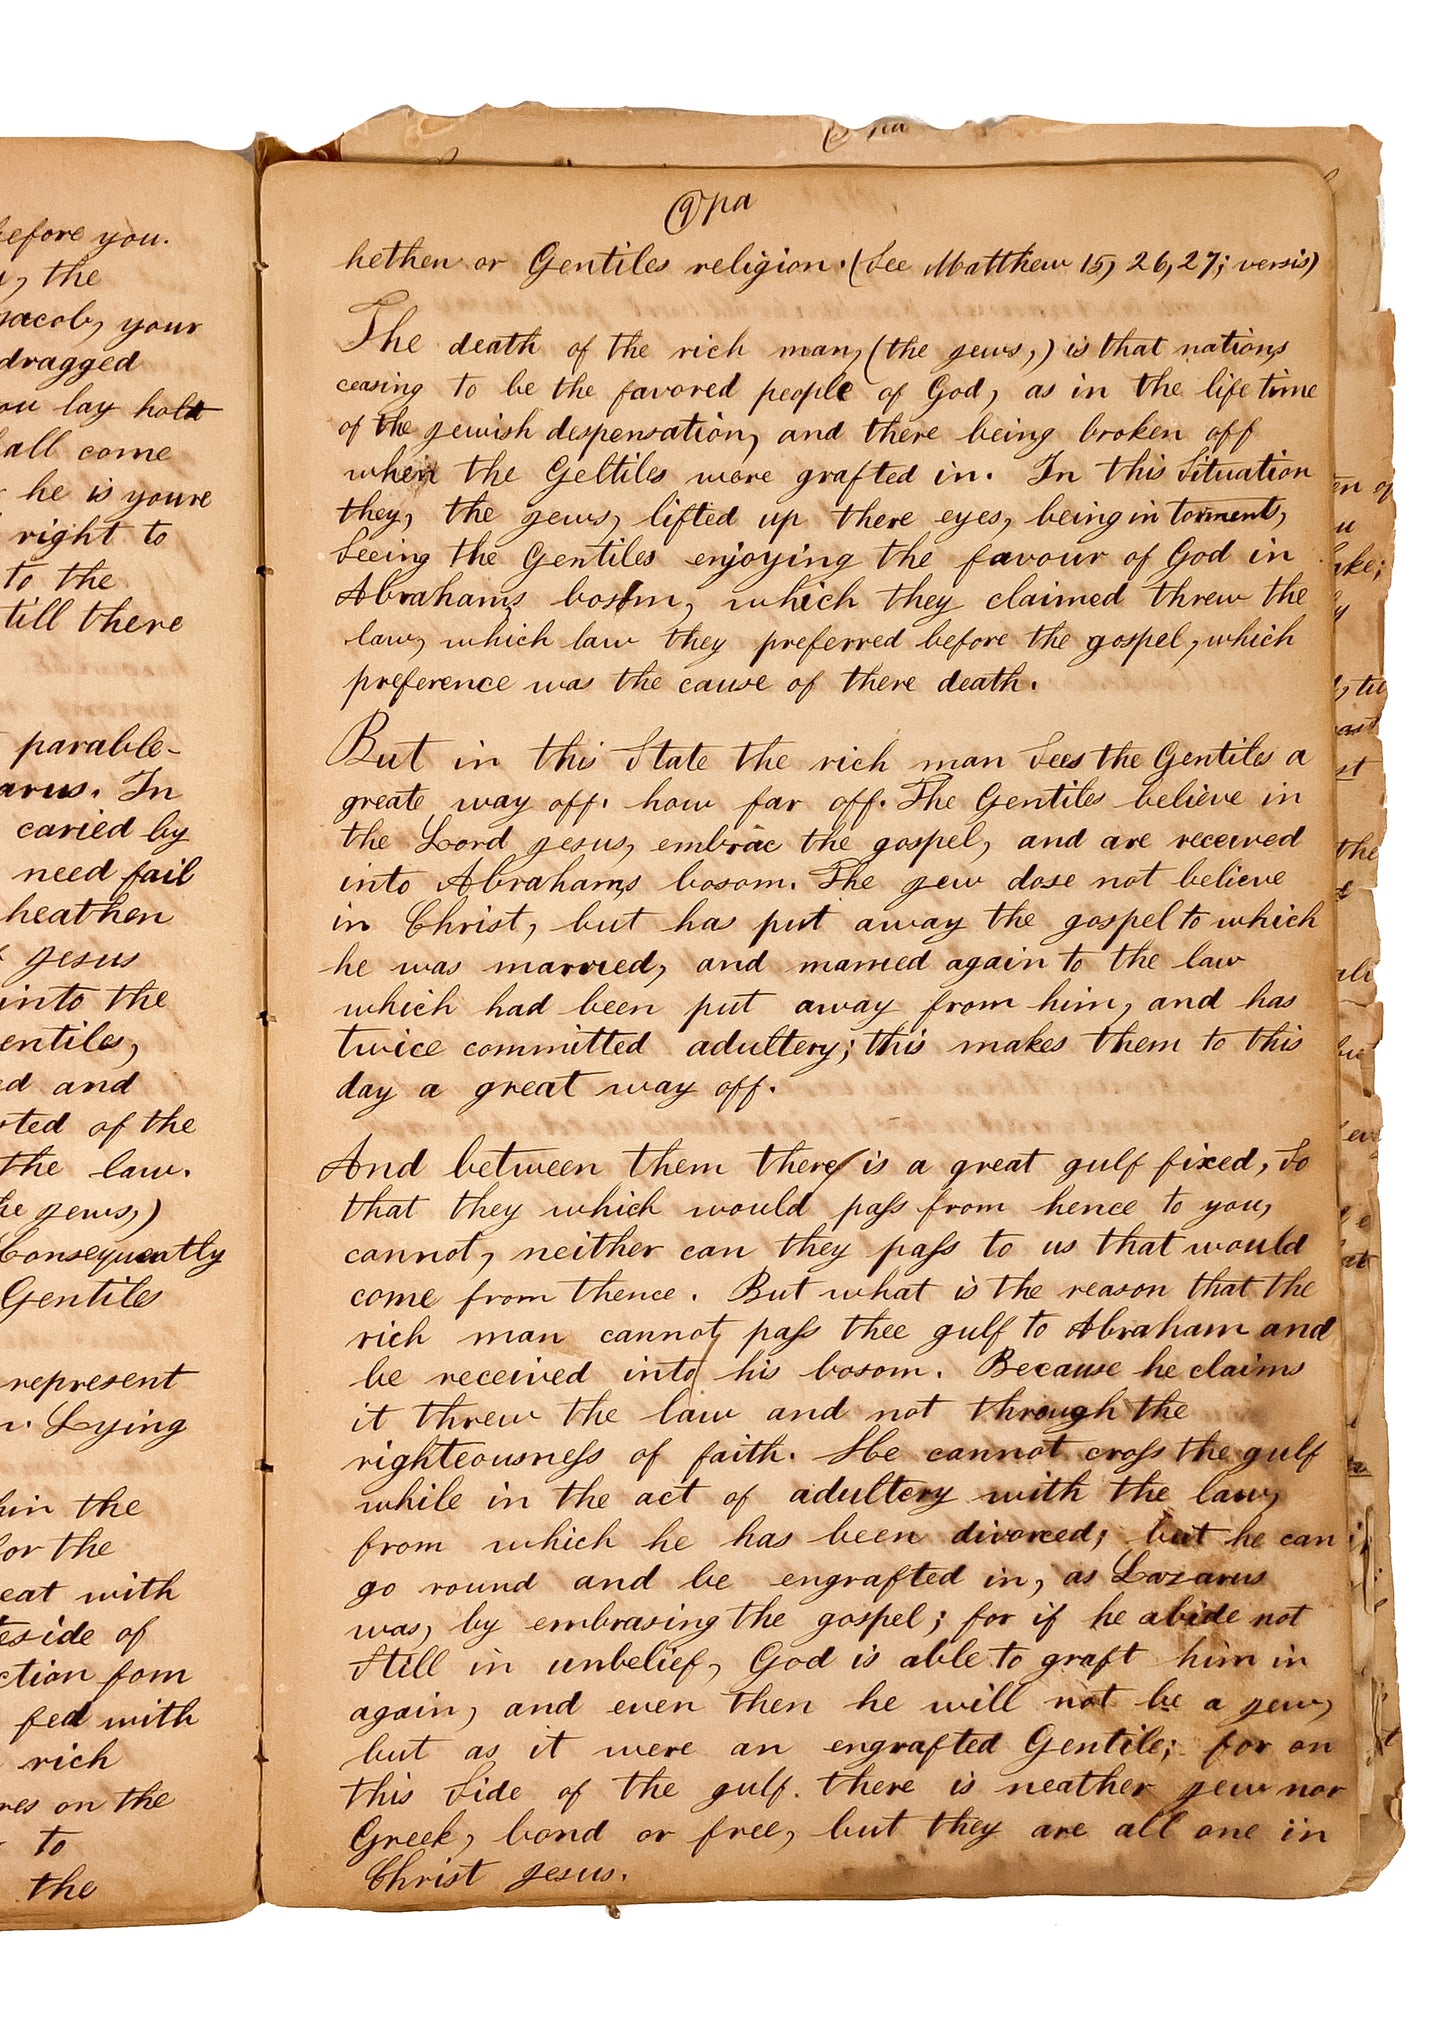 before you.
the
jacob, your
dragged
you lay holt
shall come
he is youre
right to
to the
till there
parable-
Lazarus. In
caried by
need fail
heathen
Jesus
into the
Gentiles,
and
of the
the law.
the jews,)
Consequently
Gentiles
represent
Lying
the
for the
eat with
side of
fom
fed with
rich
on the
to
the
(9) pa
hethen or Gentiles religion. (See Matthew 15, 26, 27; versis)
The death of the rich man, (the jews,) is that nations
ceasing to be the favored people of God, as in the life time
of the jewish despensation, and there being broken off
when the Geltiles were grafted in. In this Situation
they, the jews, lifted up there eyes, being in torments,
Seeing the Gentiles enjoying the favour of God in
Abrahams bosom, which they claimed threw the
law, which law they preferred before the gospel, which
preference was the cause of there death.
But in this State the rich man Sees the Gentiles a
greate way off. how far off. The Gentiles believe in
the Lord jesus, embrac the gospel, and are received
into Abrahams bosom. The jew dose not believe
in Christ, but has put away the gospel to which
he was married, and married again to the law
which had been put away from him, and has
twice committed adultery; this makes them to this
day a great way off.
And between them there is a great gulf fixed, So
that they which would pass from hence to you,
cannot, neither can they pass to us that would
come from thence. But what is the reason that the
rich man cannot pass thee gulf to Abraham and
be received into his bosom. Because he claims
it threw the law and not through the
righteousness of faith. He cannot cross the gulf
while in the act of adultery with the law,
from which he has been divorced; but he can
go round and be engrafted in, as Lazarus
was, by embrasing the gospel; for if he abide not
Still in unbelief, God is able to graft him in
again, and even then he will not be a jew,
but as it were an engrafted Gentile; for on
this Side of the gulf. there is neather jew nor
Greek, bond or free, but they are all one in
Christ jesus.